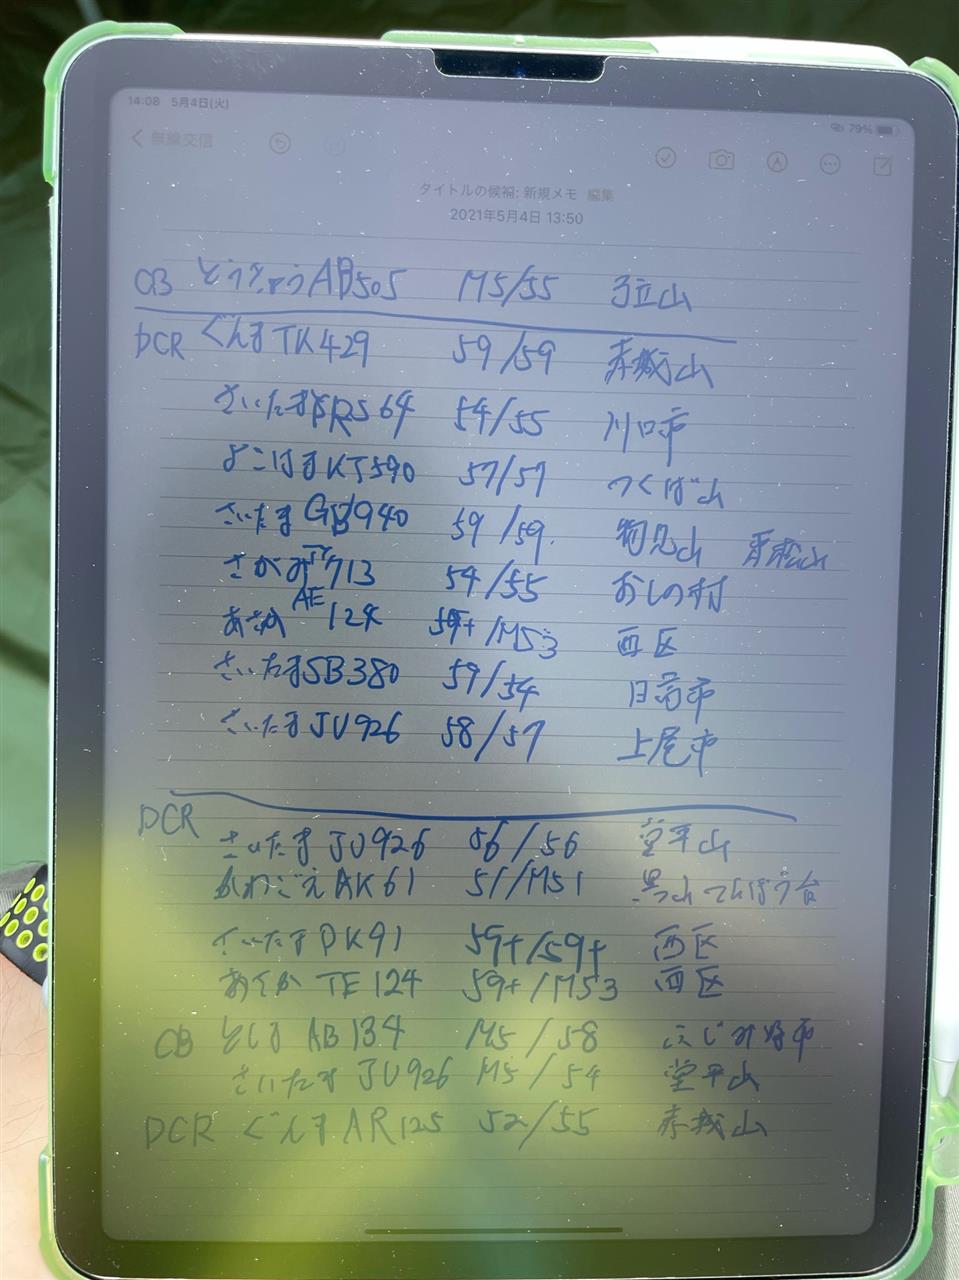 14:08 5月4日(火)
79%
無線交信
タイトルの候補: 新規メモ 編集
2021年5月4日 13:50
CB とうきょうAB505 M5/55 弓立山
DCR ぐんまTK429 59/59 赤城山
さいたま RS64 54/55 川口市
よこはまKJ590 57/57 つくば山
さいたま GB940 59/59. 物見山
さがみ 713 54/55 おしの村
あさか AE 124 59+/M53 西区
さいたまSB380 59/54 日高市
さいたまJU926 58/57 上尾市
DCR
さいたまJU926 56/56 堂平山
かわごえAK61 51/M51 てんぼう台
さいたまDK91 59+/59+ 西区
あさか TE124 59+/M53 西区
CB としまAB134 M5/58 ふじみ野市
さいたまJU926 M5/54 堂平山
DCR ぐんまAR125 52/55 赤城山